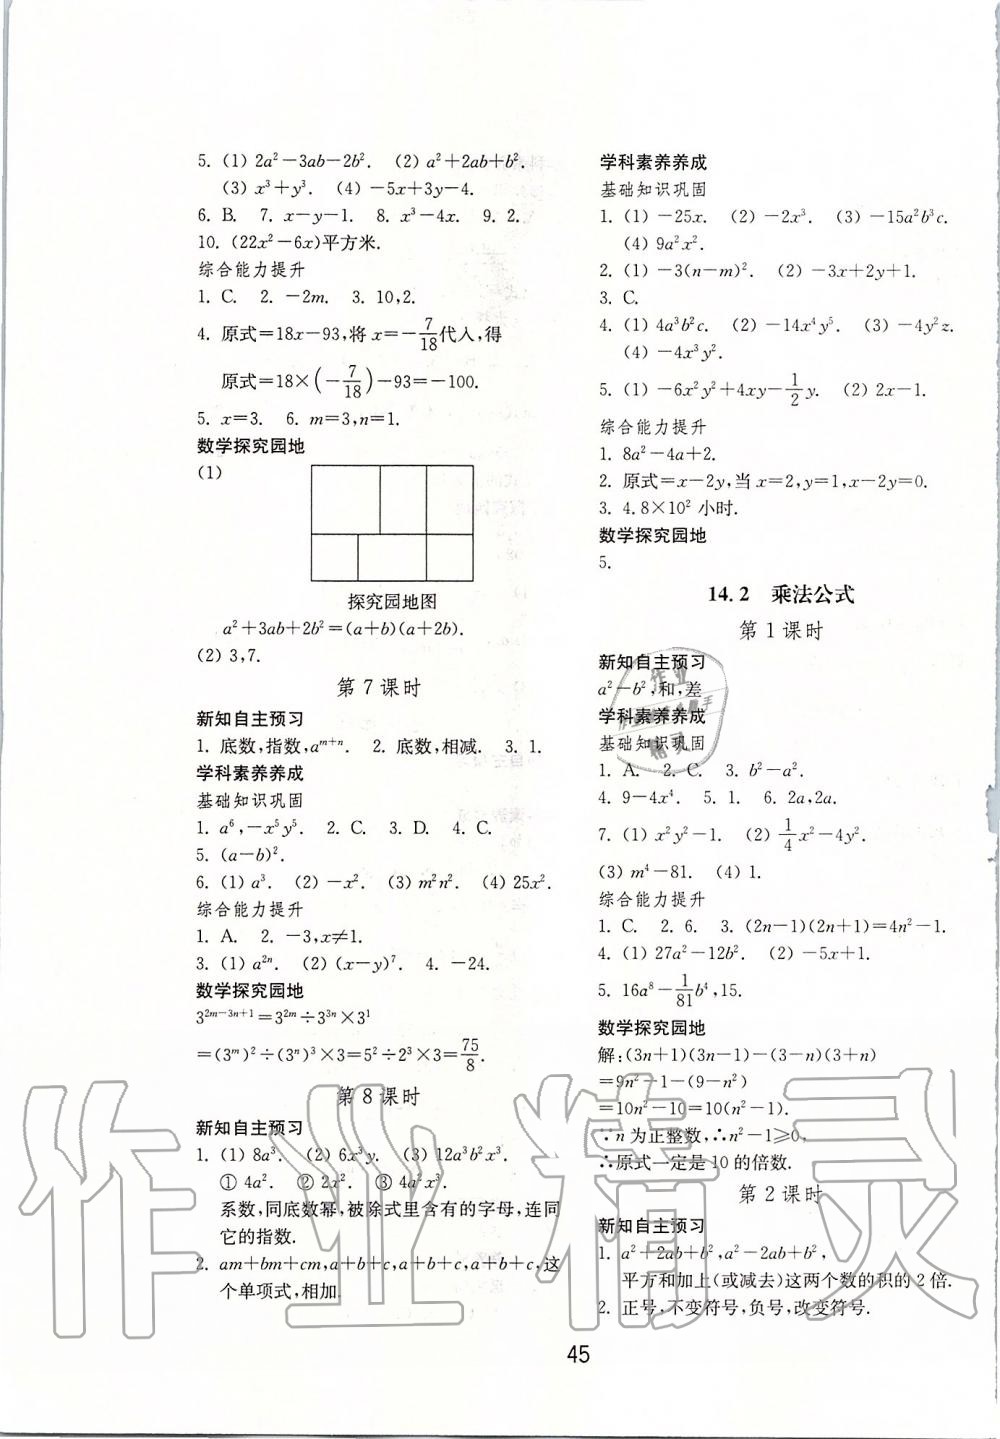 5. (1) 2a²-3ab-2b². (2) a²+2ab+b².
(3) x³+y³. (4) -5x+3y-4.
6. B. 7. x-y-1. 8. x³-4x. 9. 2.
10. (22x²-6x)平方米.
综合能力提升
1. C. 2. -2m. 3. 10,2.
4. 原式=18x-93,将 x=-7/18代入,得
原式=18×(-7/18)-93=-100.
5. x=3. 6. m=3,n=1.
数学探究园地
(1)
探究园地图
a²+3ab+2b²=(a+b)(a+2b).
(2) 3,7.
第 7 课时
新知自主预习
1. 底数,指数,aᵐ⁺ⁿ. 2. 底数,相减. 3. 1.
学科素养养成
基础知识巩固
1. a⁶,-x⁵y⁵. 2. C. 3. D. 4. C.
5. (a-b)².
6. (1) a³. (2) -x². (3) m²n². (4) 25x².
综合能力提升
1. A. 2. -3,x≠1.
3. (1) a²ⁿ. (2) (x-y)⁷. 4. -24.
数学探究园地
3²ᵐ⁻³ⁿ⁺¹=3²ᵐ÷3³ⁿ×3¹
=(3ᵐ)²÷(3ⁿ)³×3=5²÷2³×3=75/8.
第 8 课时
新知自主预习
1. (1) 8a³. (2) 6x³y. (3) 12a³b²x³.
① 4a². ② 2x². ③ 4a²x³.
系数,同底数幂,被除式里含有的字母,连同
它的指数.
2. am+bm+cm,a+b+c,a+b+c,a+b+c,这
个单项式,相加.
学科素养养成
基础知识巩固
1. (1) -25x. (2) -2x³. (3) -15a²b³c.
(4) 9a²x².
2. (1) -3(n-m)². (2) -3x+2y+1.
3. C.
4. (1) 4a³b²c. (2) -14x⁴y⁵. (3) -4y²z.
(4) -4x³y².
5. (1) -6x²y²+4xy-1/2y. (2) 2x-1.
综合能力提升
1. 8a²-4a+2.
2. 原式=x-2y,当 x=2,y=1,x-2y=0.
3. 4.8×10² 小时.
数学探究园地
5.
14.2 乘法公式
第 1 课时
新知自主预习
a²-b²,和,差
学科素养养成
基础知识巩固
1. A. 2. C. 3. b²-a².
4. 9-4x⁴. 5. 1. 6. 2a,2a.
7. (1) x²y²-1. (2) 1/4x²-4y².
(3) m⁴-81. (4) 1.
综合能力提升
1. C. 2. 6. 3. (2n-1)(2n+1)=4n²-1.
4. (1) 27a²-12b². (2) -5x+1.
5. 16a⁸-1/81b⁴,15.
数学探究园地
解:(3n+1)(3n-1)-(3-n)(3+n)
=9n²-1-(9-n²)
=10n²-10=10(n²-1).
∵n 为正整数,∴n²-1≥0,
∴原式一定是 10 的倍数.
第 2 课时
新知自主预习
1. a²+2ab+b²,a²-2ab+b²,
平方和加上(或减去)这两个数的积的 2 倍.
2. 正号,不变符号,负号,改变符号.
45
作业精灵